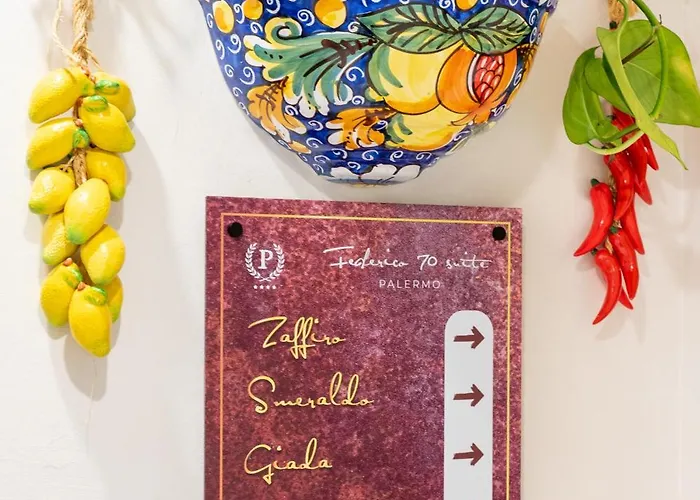 P
Federico 70 suite
PALERMO
Zaffiro
Smeraldo
Giada